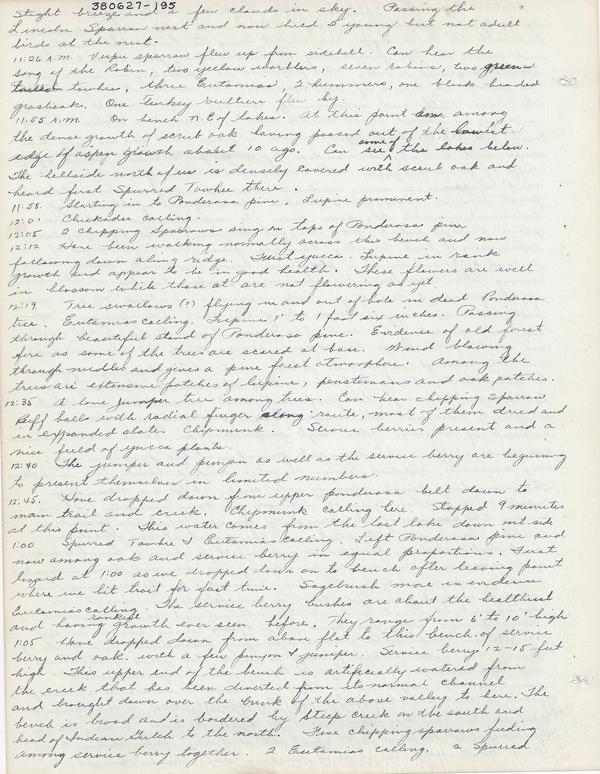 380627-195
Slight breeze and a few clouds in sky. Passing the
Lincoln Sparrow nest and now hied 5 young but not adult
birds at the nest.
11:26 A.M. Vesper sparrow flew up from sidehill. Can hear the
song of the Robin, two yellow warblers, seven robins, two green
tailed towhee, three Eutamias, 2 hummers, one black headed
grosbeak. One turkey vulture flew by.
11:55 A.M. On bench N.E of lakes. At this point am among
the dense growth of scrub oak having passed out of the lowest
edge of aspen growth about 10 ago. Can see some of the lakes below.
The hillside north of us is densely covered with scrub oak and
heard first Spurred Towhee there.
11:58. Starting in to Ponderosa pine. Lupine prominent.
12:01 Chickadee calling.
12:05 2 Chipping Sparrows sing on tops of Ponderosa pine
12:12 Have been walking normally across this bench and now
following down along ridge. First yucca. Lupine in rank
growth and appear to be in good health. These flowers are well
in blossom while those at are not flowering as yet.
12:19. Tree swallows (?) flying in and out of hole in dead Ponderosa
tree. Eutamias calling. Lupine 1' to 1 foot six inches. Passing
through beautiful stand of Ponderosa pine. Evidence of old forest
fire as some of the trees are scared at base. Wind blowing
through needles and gives a pine forest atmosphere. Among the
trees are extensive patches of lupine, penstemons and oak patches.
12:35 A lone juniper tree among trees. Can hear chipping sparrow
Puff balls with radial finger along route, most of them dried and
in expanded state. Chipmunk. Service berries present and a
nice field of yucca plants.
12:40 The juniper and pinyon as well as the service berry are beginning
to present themselves in limited numbers.
12:45. Have dropped down from upper ponderosa belt down to
main trail and creek. Chipmunk calling here. Stopped 9 minutes
at this point. This water comes from the last lake down mt. side
1:00 Spurred Towhee & Eutamias calling. Left Ponderosa pine and
now among oak and service berry in equal proportions. First
lizard at 1:00 as we dropped down on to bench after leaving point
where we hit trail for first time. Sagebrush more in evidence
Eutamias calling. The service berry bushes are about the healthiest
and having rankest growth ever seen before. They range from 6' to 10' high
1:05 Have dropped down from above flat to this bench of service
berry and oak. with a few pinyon & juniper. Service berry 12-15 feet
high. This upper end of the bench is artificially watered from
the creek that has been diverted from its normal channel
and brought down over the bank of the above valley to here. The
bench is broad and is bordered by Steep creek on the south and
head of Indian Gulch to the north. Five chipping sparrows feeding
among service berry together. 2 Eutamias calling. 2 Spurred